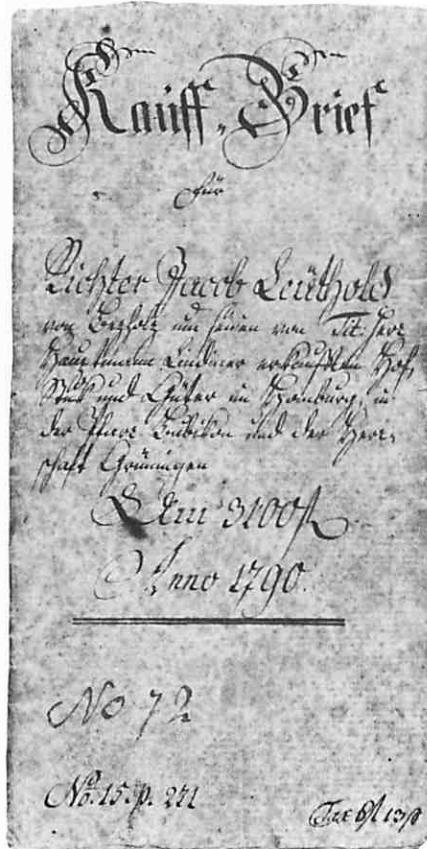 Kauff-Brief
für
Richter Jacob Leüthold
von um seinen von Tit. Herr
Hauptmann Lindiner erkaufften Hof,
Stuk und Güter im Homburg, in
der Pfarr Bubikon und der Herr-
schaft Grüningen
Um 3100 fl
Anno 1790.
No 72
No. 15. p. 221
Tax 6 fl 13 ß